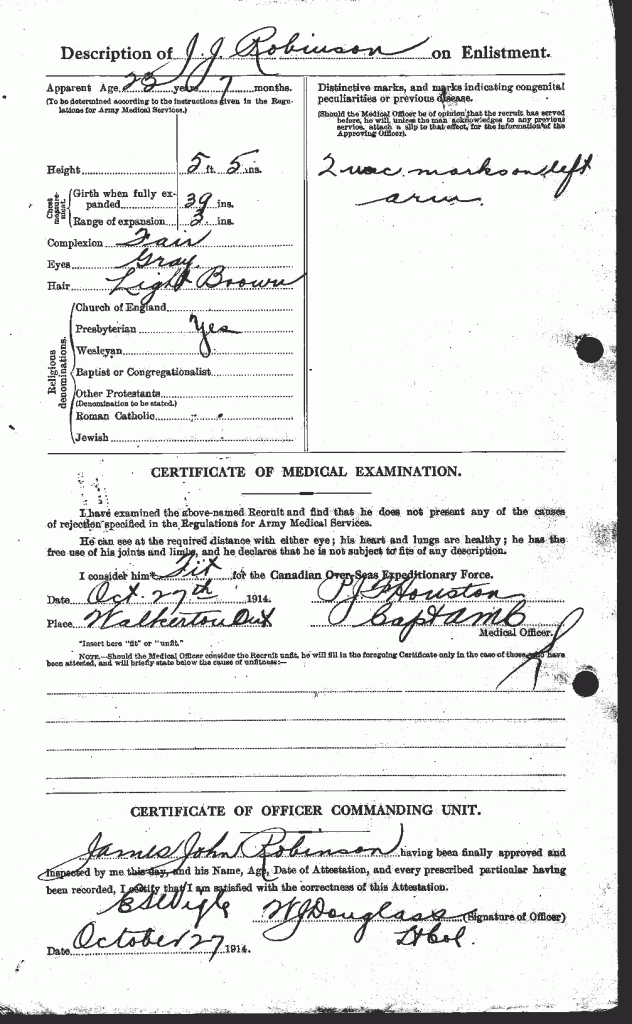 Description of J. J. Robinson on Enlistment.
Apparent Age 23 years 7 months.
(To be determined according to the instructions given in the Regulations for Army Medical Services.)
Height 5 ft. 5 ins.
Chest measurement. Girth when fully expanded 39 ins.
Range of expansion 3 ins.
Complexion Fair
Eyes Gray
Hair Light Brown
Religious denominations.
Church of England
Presbyterian Yes
Wesleyan
Baptist or Congregationalist
Other Protestants
(Denomination to be stated.)
Roman Catholic
Jewish
Distinctive marks, and marks indicating congenital
peculiarities or previous disease.
(Should the Medical Officer be of opinion that the recruit has served
before, he will, unless the man acknowledges to any previous
service, attach a slip to that effect, for the information of the
Approving Officer).
2 vac. marks on left
arm.
CERTIFICATE OF MEDICAL EXAMINATION.
I have examined the above-named Recruit and find that he does not present any of the causes
of rejection specified in the Regulations for Army Medical Services.
He can see at the required distance with either eye; his heart and lungs are healthy; he has the
free use of his joints and limbs, and he declares that he is not subject to fits of any description.
I consider him* Fit for the Canadian Over-Seas Expeditionary Force.
Date Oct. 27th 1914. Houston
Place Walkerton Ont Capt AMC
Medical Officer.
*Insert here "fit" or "unfit."
NOTE.—Should the Medical Officer consider the Recruit unfit, he will fill in the foregoing Certificate only in the case of those who have
been attested, and will briefly state below the cause of unfitness:—
CERTIFICATE OF OFFICER COMMANDING UNIT.
James John Robinson having been finally approved and
inspected by me this day, and his Name, Age, Date of Attestation, and every prescribed particular having
been recorded, I certify that I am satisfied with the correctness of this Attestation.
ESWigle WJDouglass (Signature of Officer)
Lt Col.
Date October 27 1914.